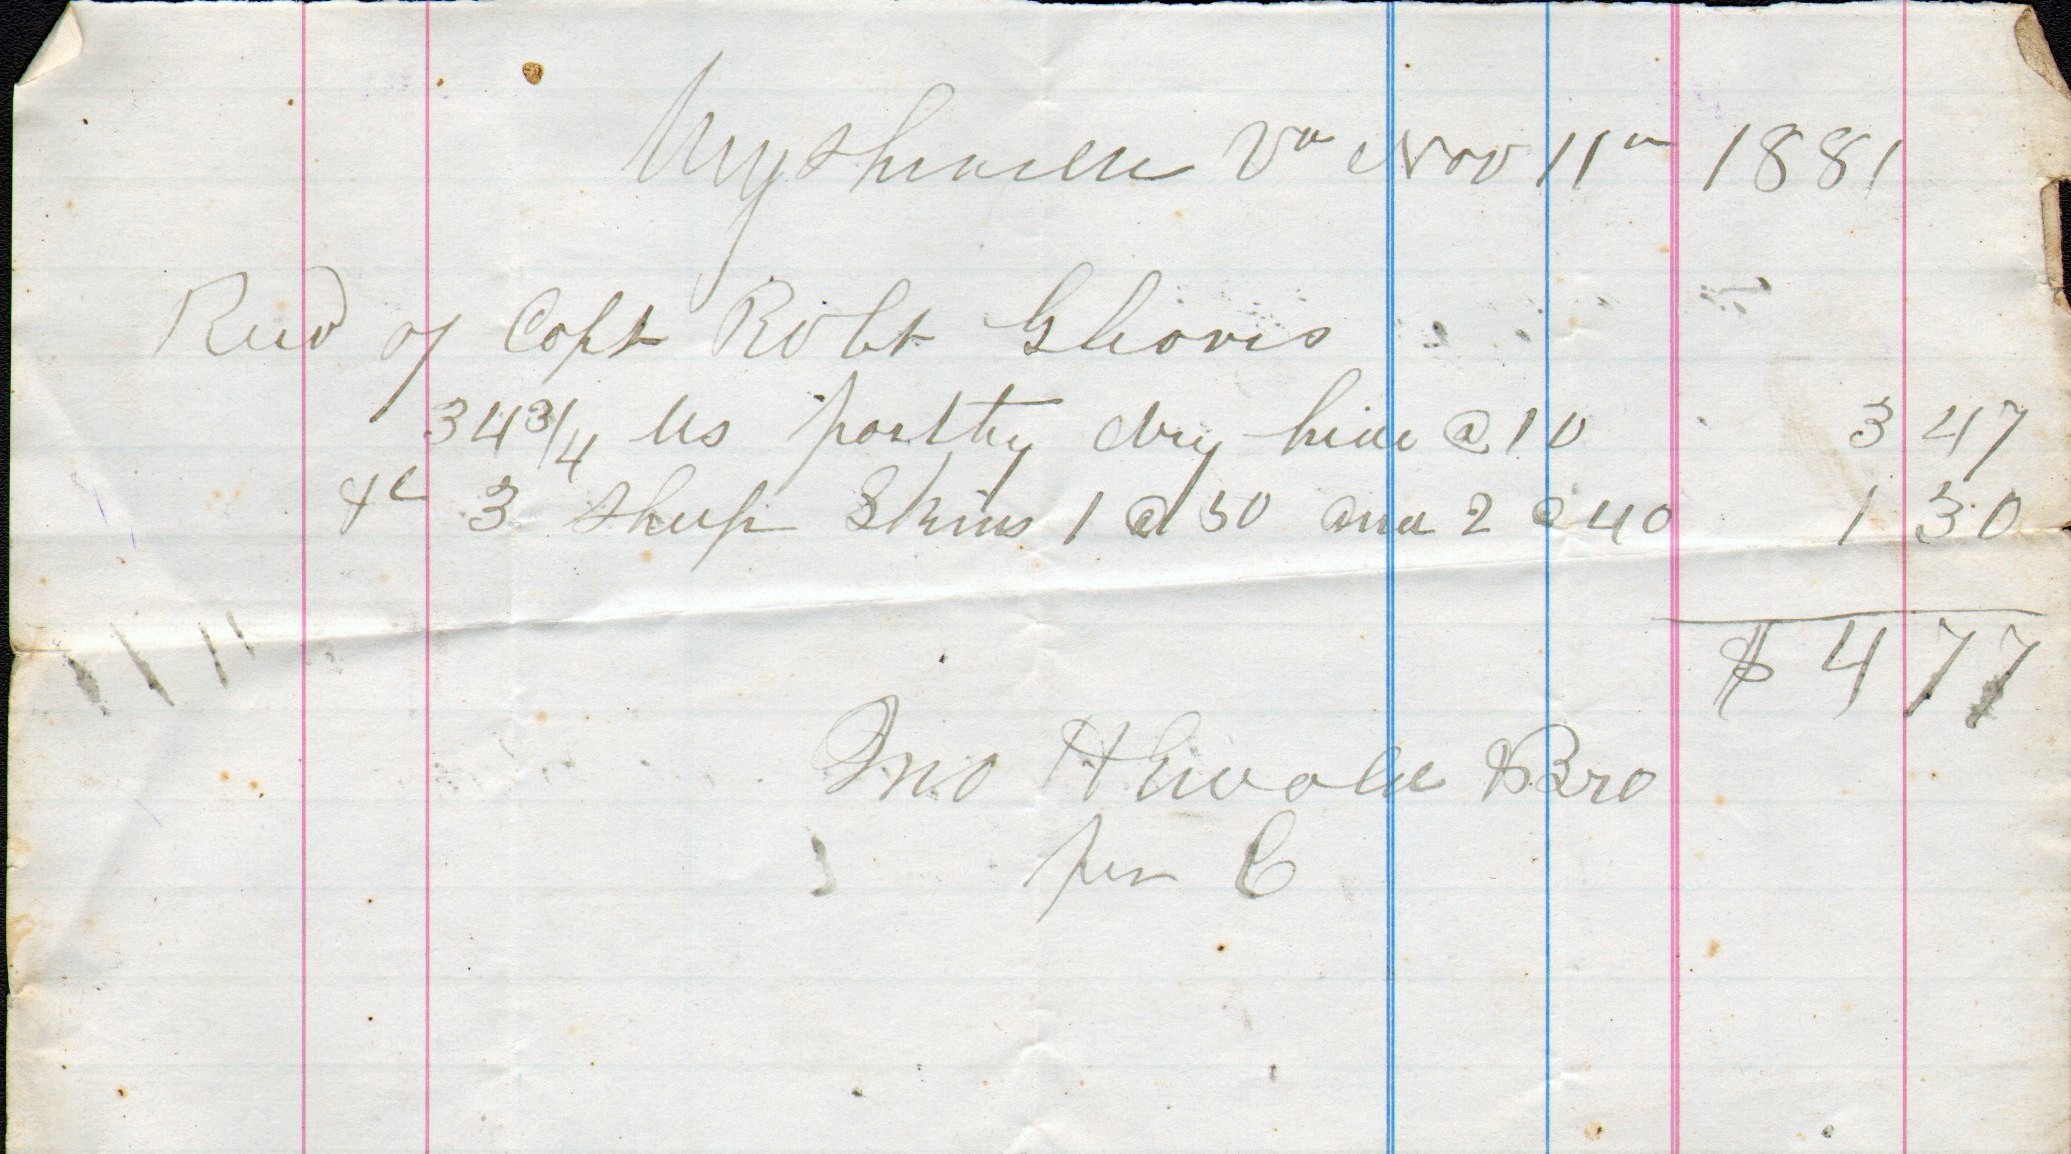 Wytheville Va Nov 11th 1881
Recd of Capt Robt Gibboney
34 3/4 lbs partly dry hide @ 10 3 47
&c 3 Sheep Skins 1 @ 50 and 2 @ 40 1 30
$ 4 77
Jno H Ewald & Bro
per C